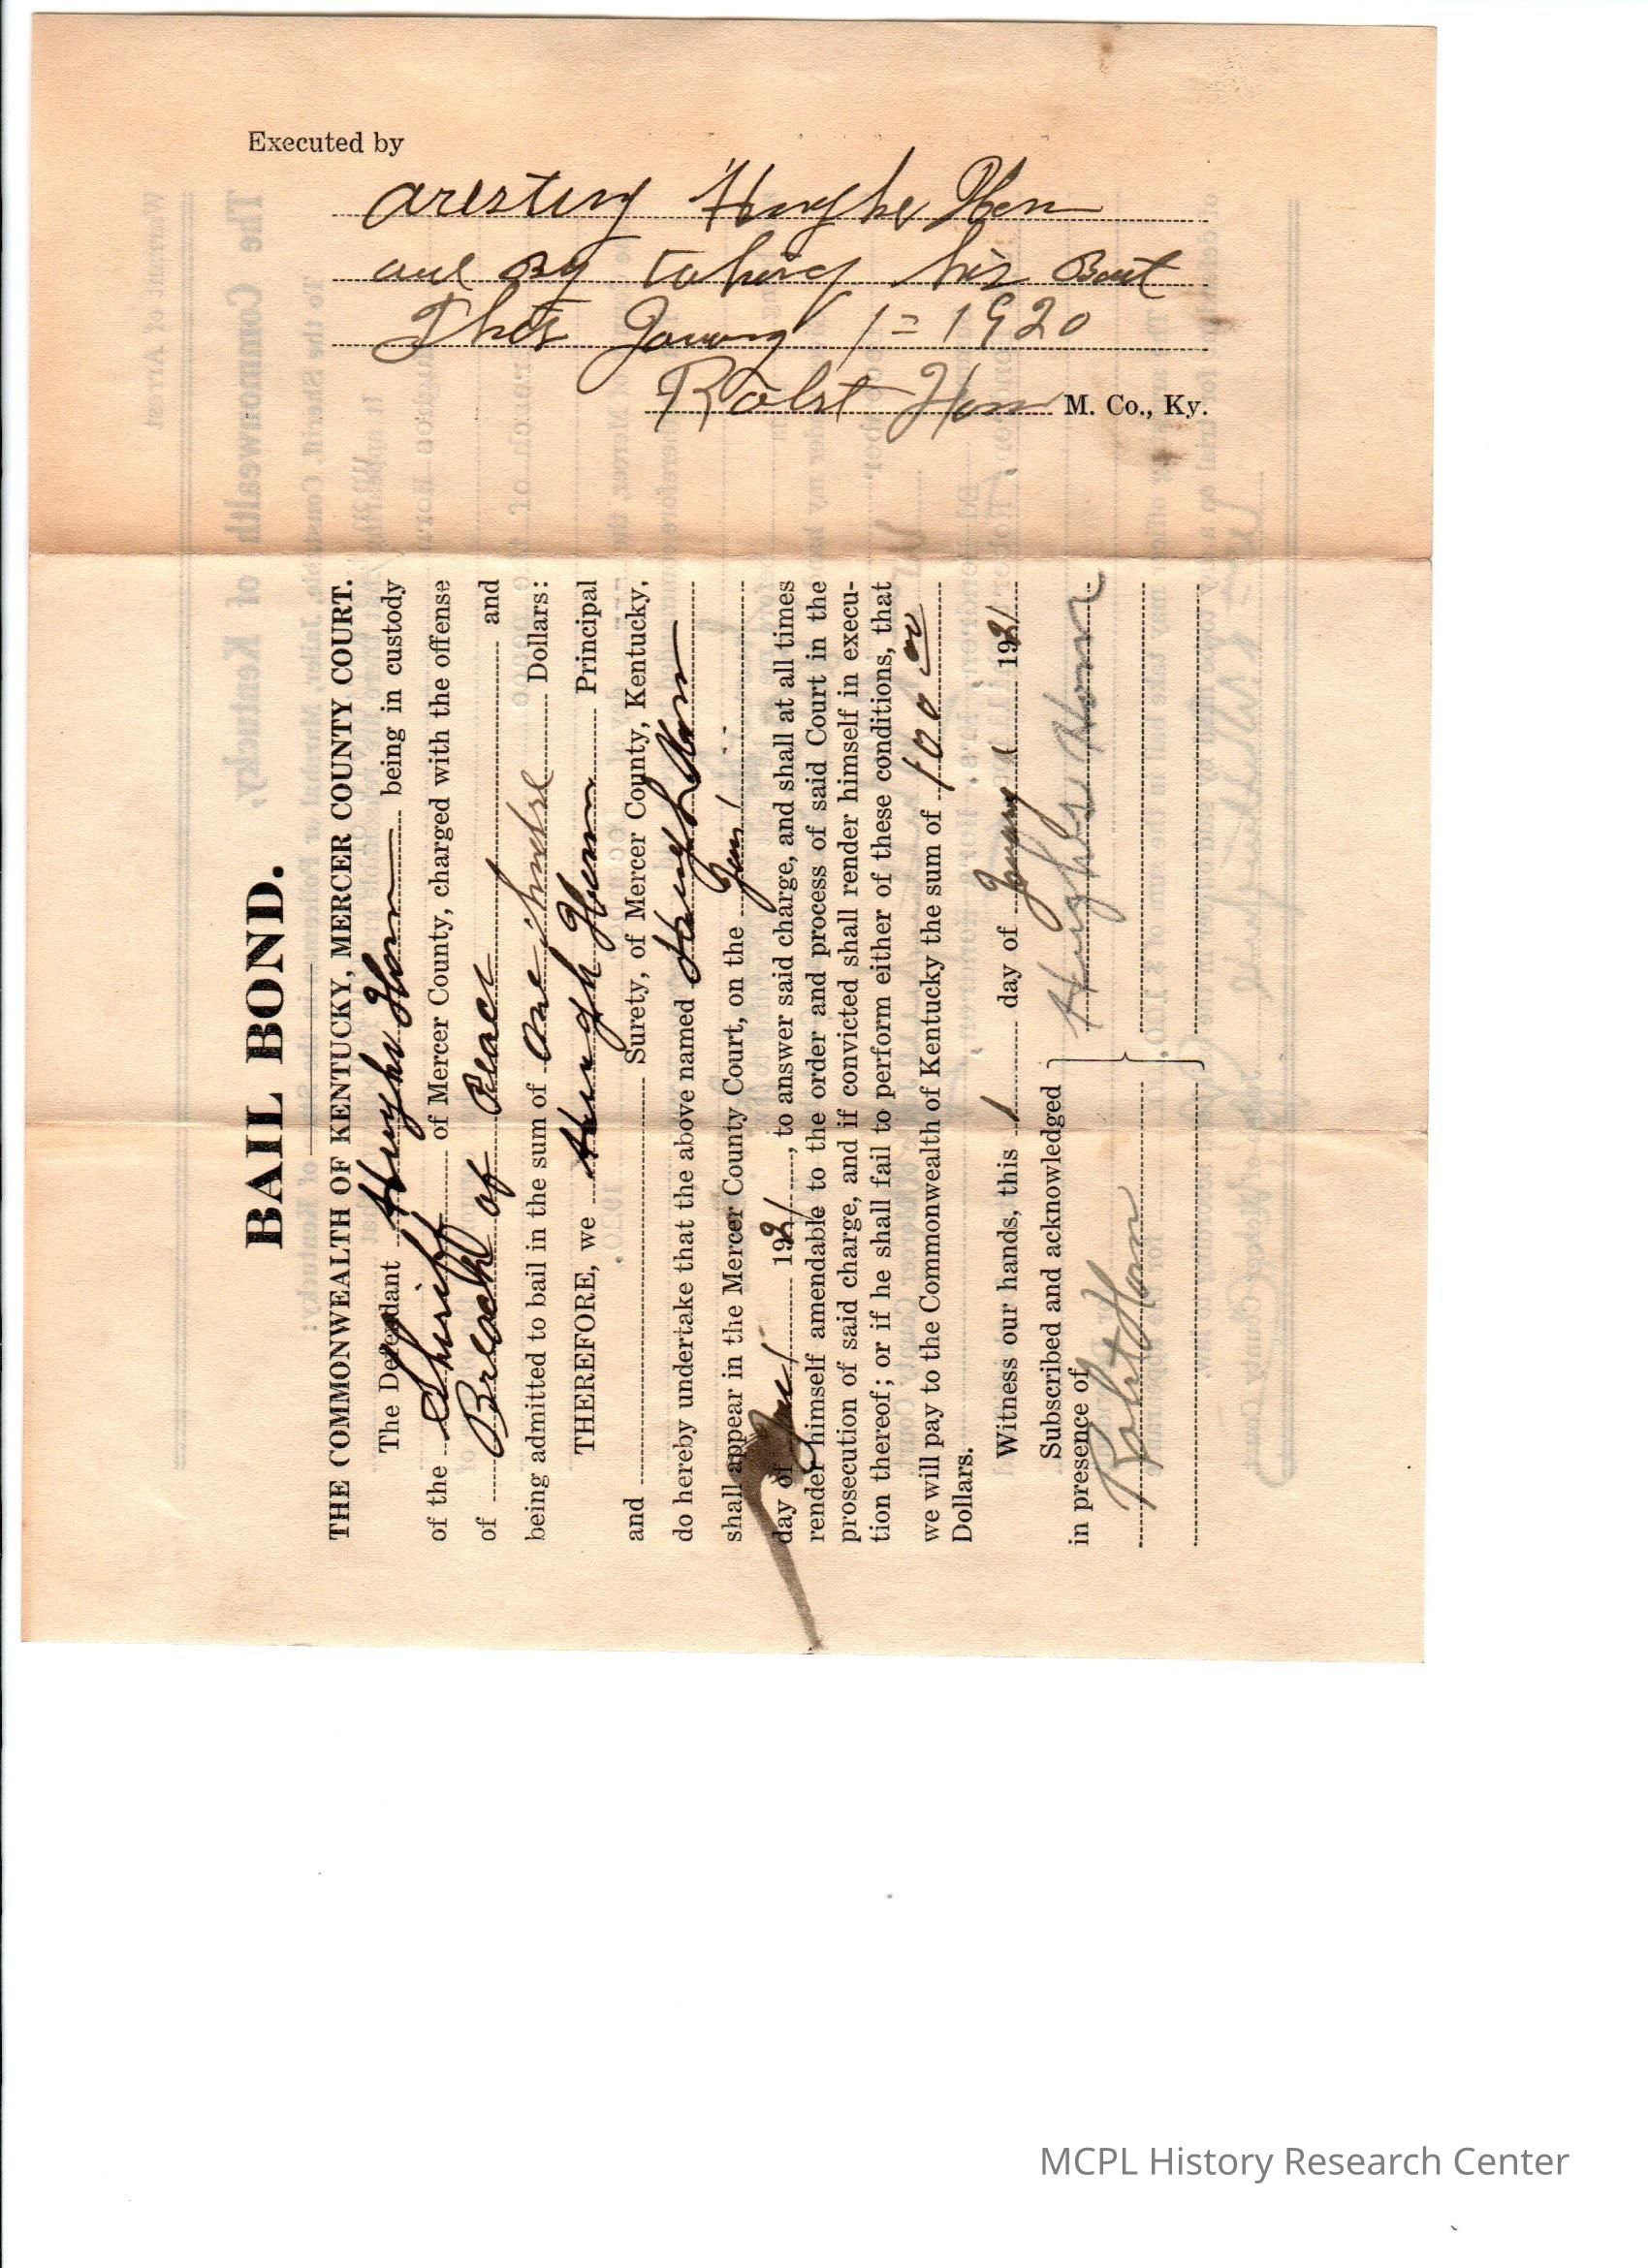 Executed by
aresting Hughe Horn
and By taking his
This 1 = 1920
Robt Horn M. Co., Ky.
BAIL BOND.
THE COMMONWEALTH OF KENTUCKY, MERCER COUNTY COURT.
The Defendant Hughs Horn being in custody
of the Shriff of Mercer County, charged with the offense
of Breach of Peace and
being admitted to bail in the sum of one Dollars:
THEREFORE, we Hugh Horn Principal
and Surety, of Mercer County, Kentucky,
do hereby undertake that the above named Hugh Horn
shall appear in the Mercer County Court, on the
day of 1921, to answer said charge, and shall at all times
render himself amendable to the order and process of said Court in the
prosecution of said charge, and if convicted shall render himself in execu-
tion thereof; or if he shall fail to perform either of these conditions, that
we will pay to the Commonwealth of Kentucky the sum of 100 00
Dollars.
Witness our hands, this 1 day of 1921
Subscribed and acknowledged
in presence of
Hughs Horn
Robt Horn
Warrant of Arrest
The Commonwealth of Kentucky,
MCPL History Research Center